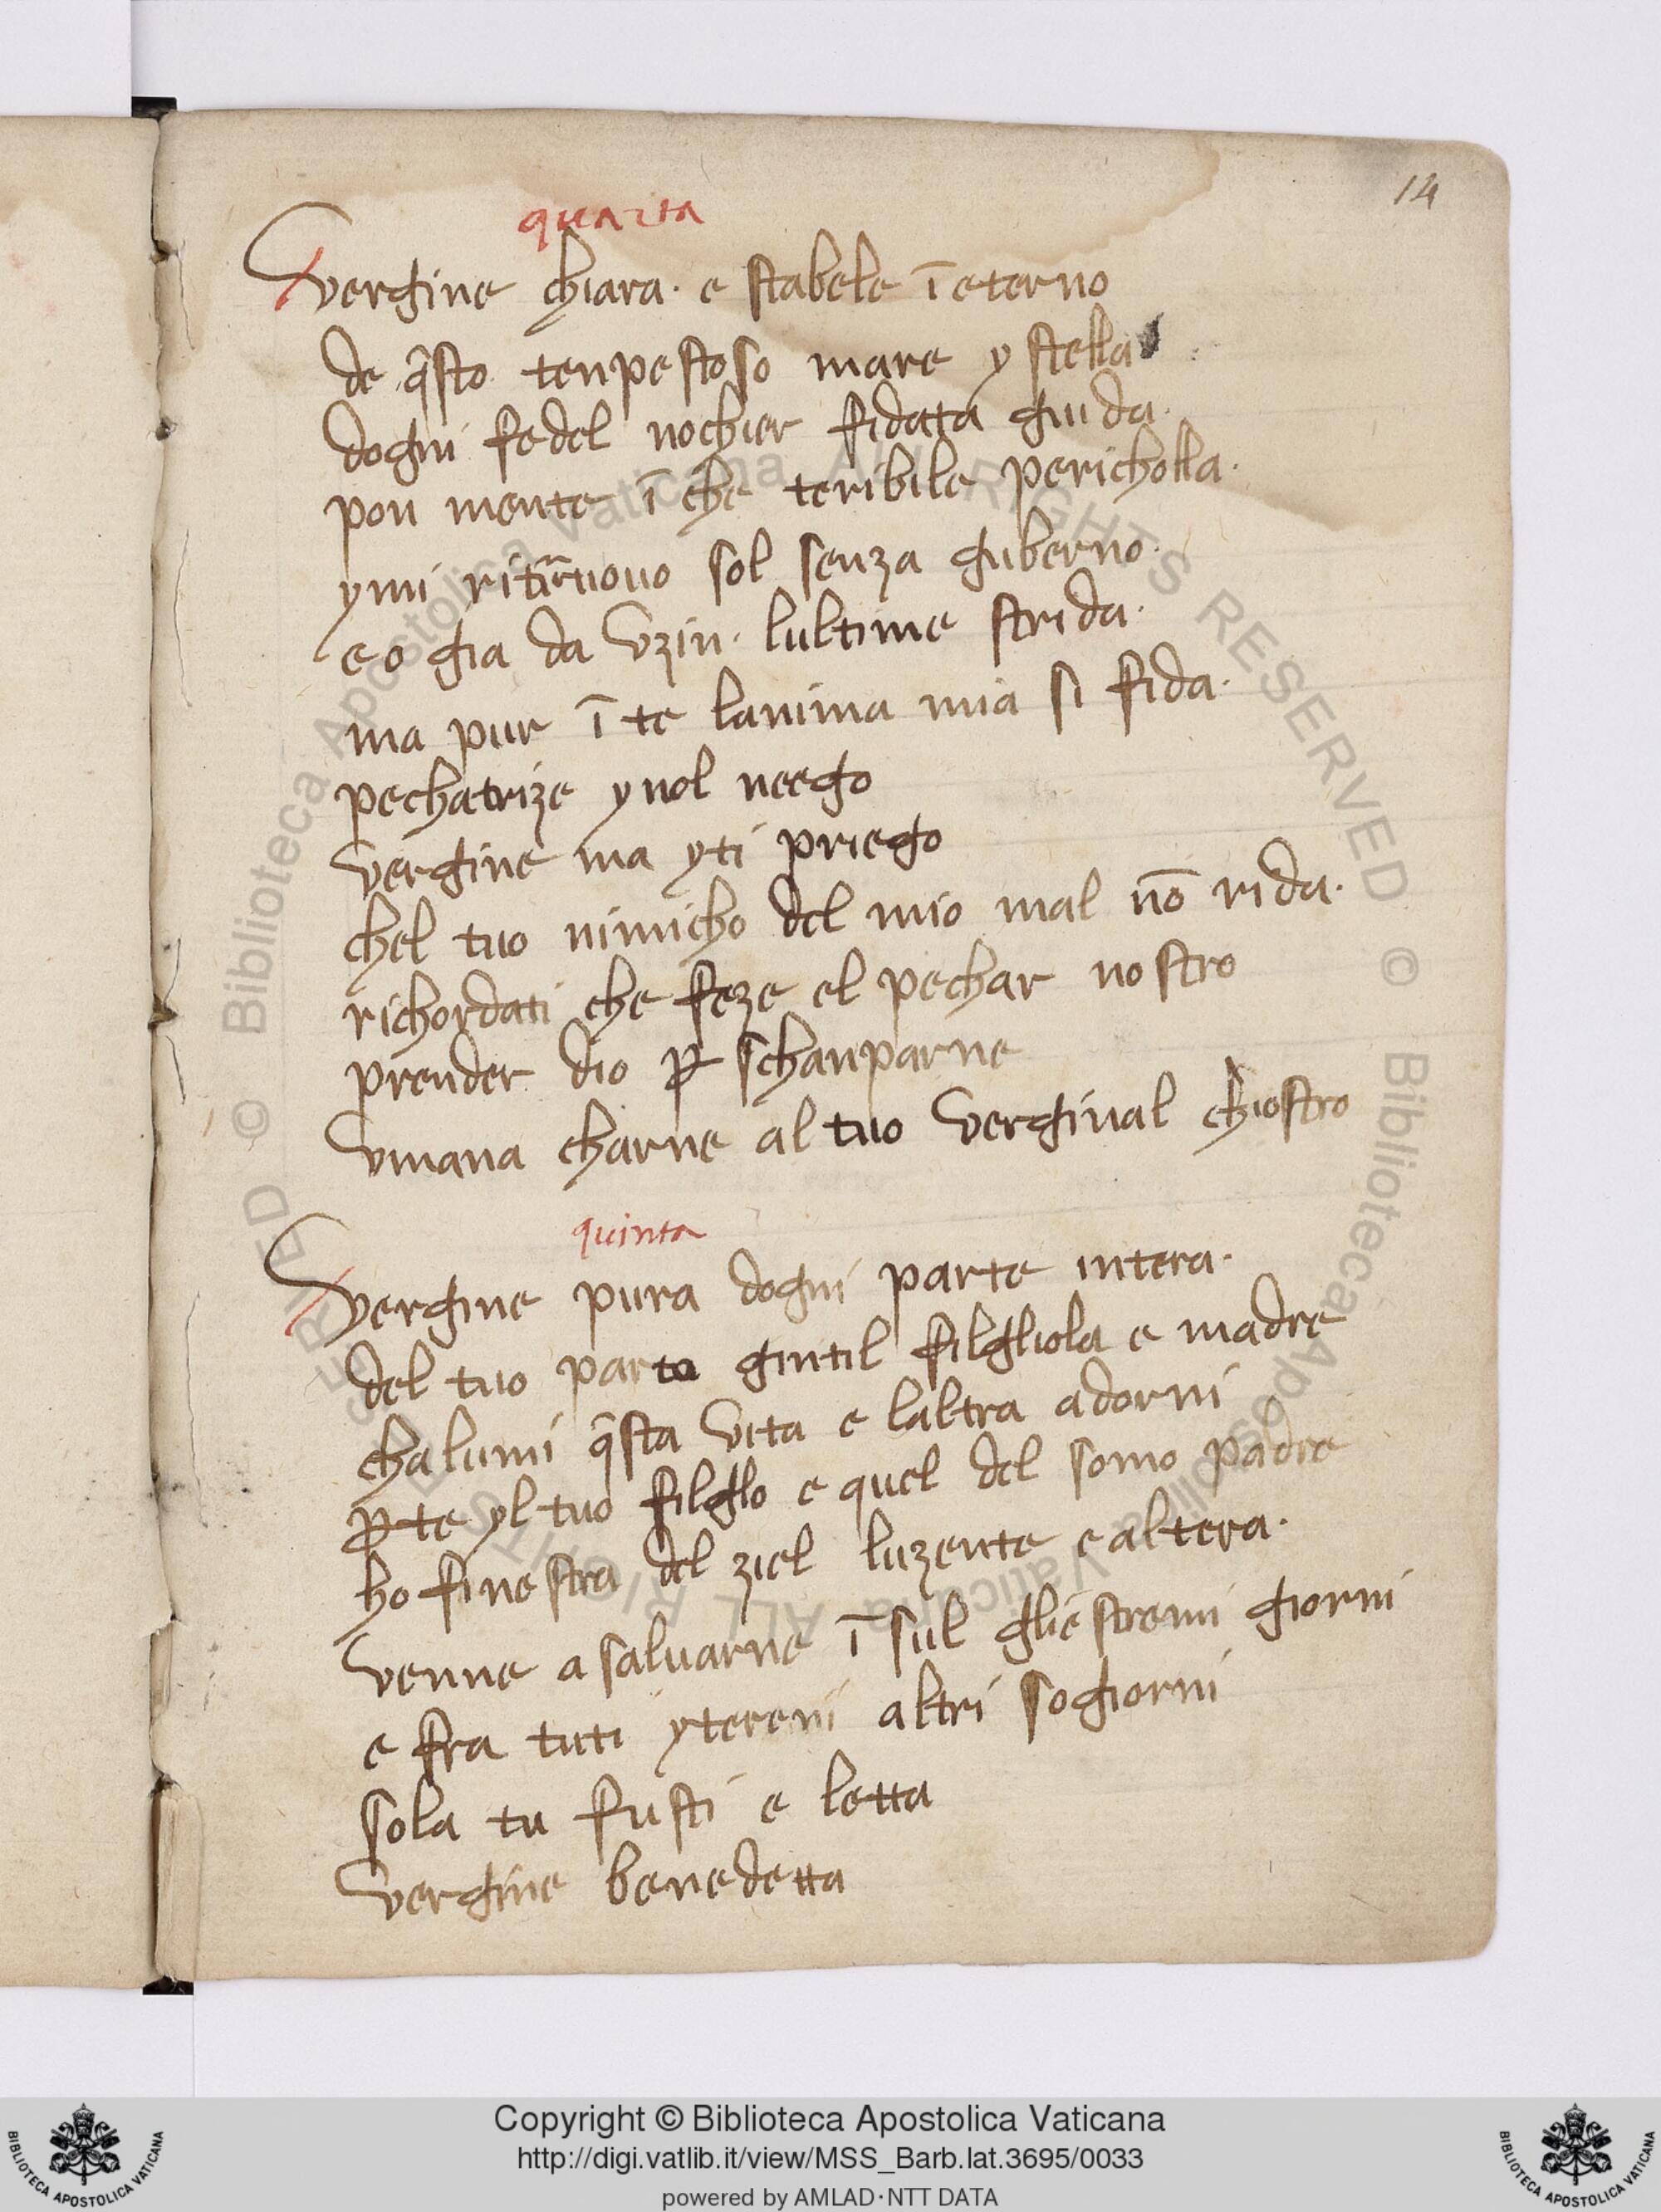 14
quarta
Vergine chiara · e stabele ī eterno
de q̄sto tenpestoso mare y stella
dogni fedel nochier fidata guida ·
pon mente ī che teribile pericholla ·
ymi ritruouo sol senza guberno ·
e o gia da vzin · lultime strida ·
ma pur ī te lanima mia si fida ·
pechatrize ynol neego
vergine ma yti priego
chel tuo nimicho del mio mal nō rida ·
richordati che feze el pechar nostro
prender dio ꝑ schanparne
vmana charne al tuo verginal chiostro
quinta
Vergine pura dogni parte intera ·
del tuo parto gintil filgliola e madre
chalumi q̄sta vita e laltra adorni
ꝑ te yl tuo filglo e quel del somo padre
ho finestra del ziel luzente e altera ·
venne a saluarne ī sul gliestremi giorni
e fra tuti ytereni altri sogiorni
sola tu fusti e letta
vergine benedetta
© Biblioteca Apostolica Vaticana ALL RIGHTS RESERVED © Biblioteca Apostolica Vaticana ALL RIGHTS RESERVED
Copyright © Biblioteca Apostolica Vaticana
http://digi.vatlib.it/view/MSS_Barb.lat.3695/0033
powered by AMLAD·NTT DATA
BIBLIOTECA APOSTOLICA VATICANA
BIBLIOTECA APOSTOLICA VATICANA